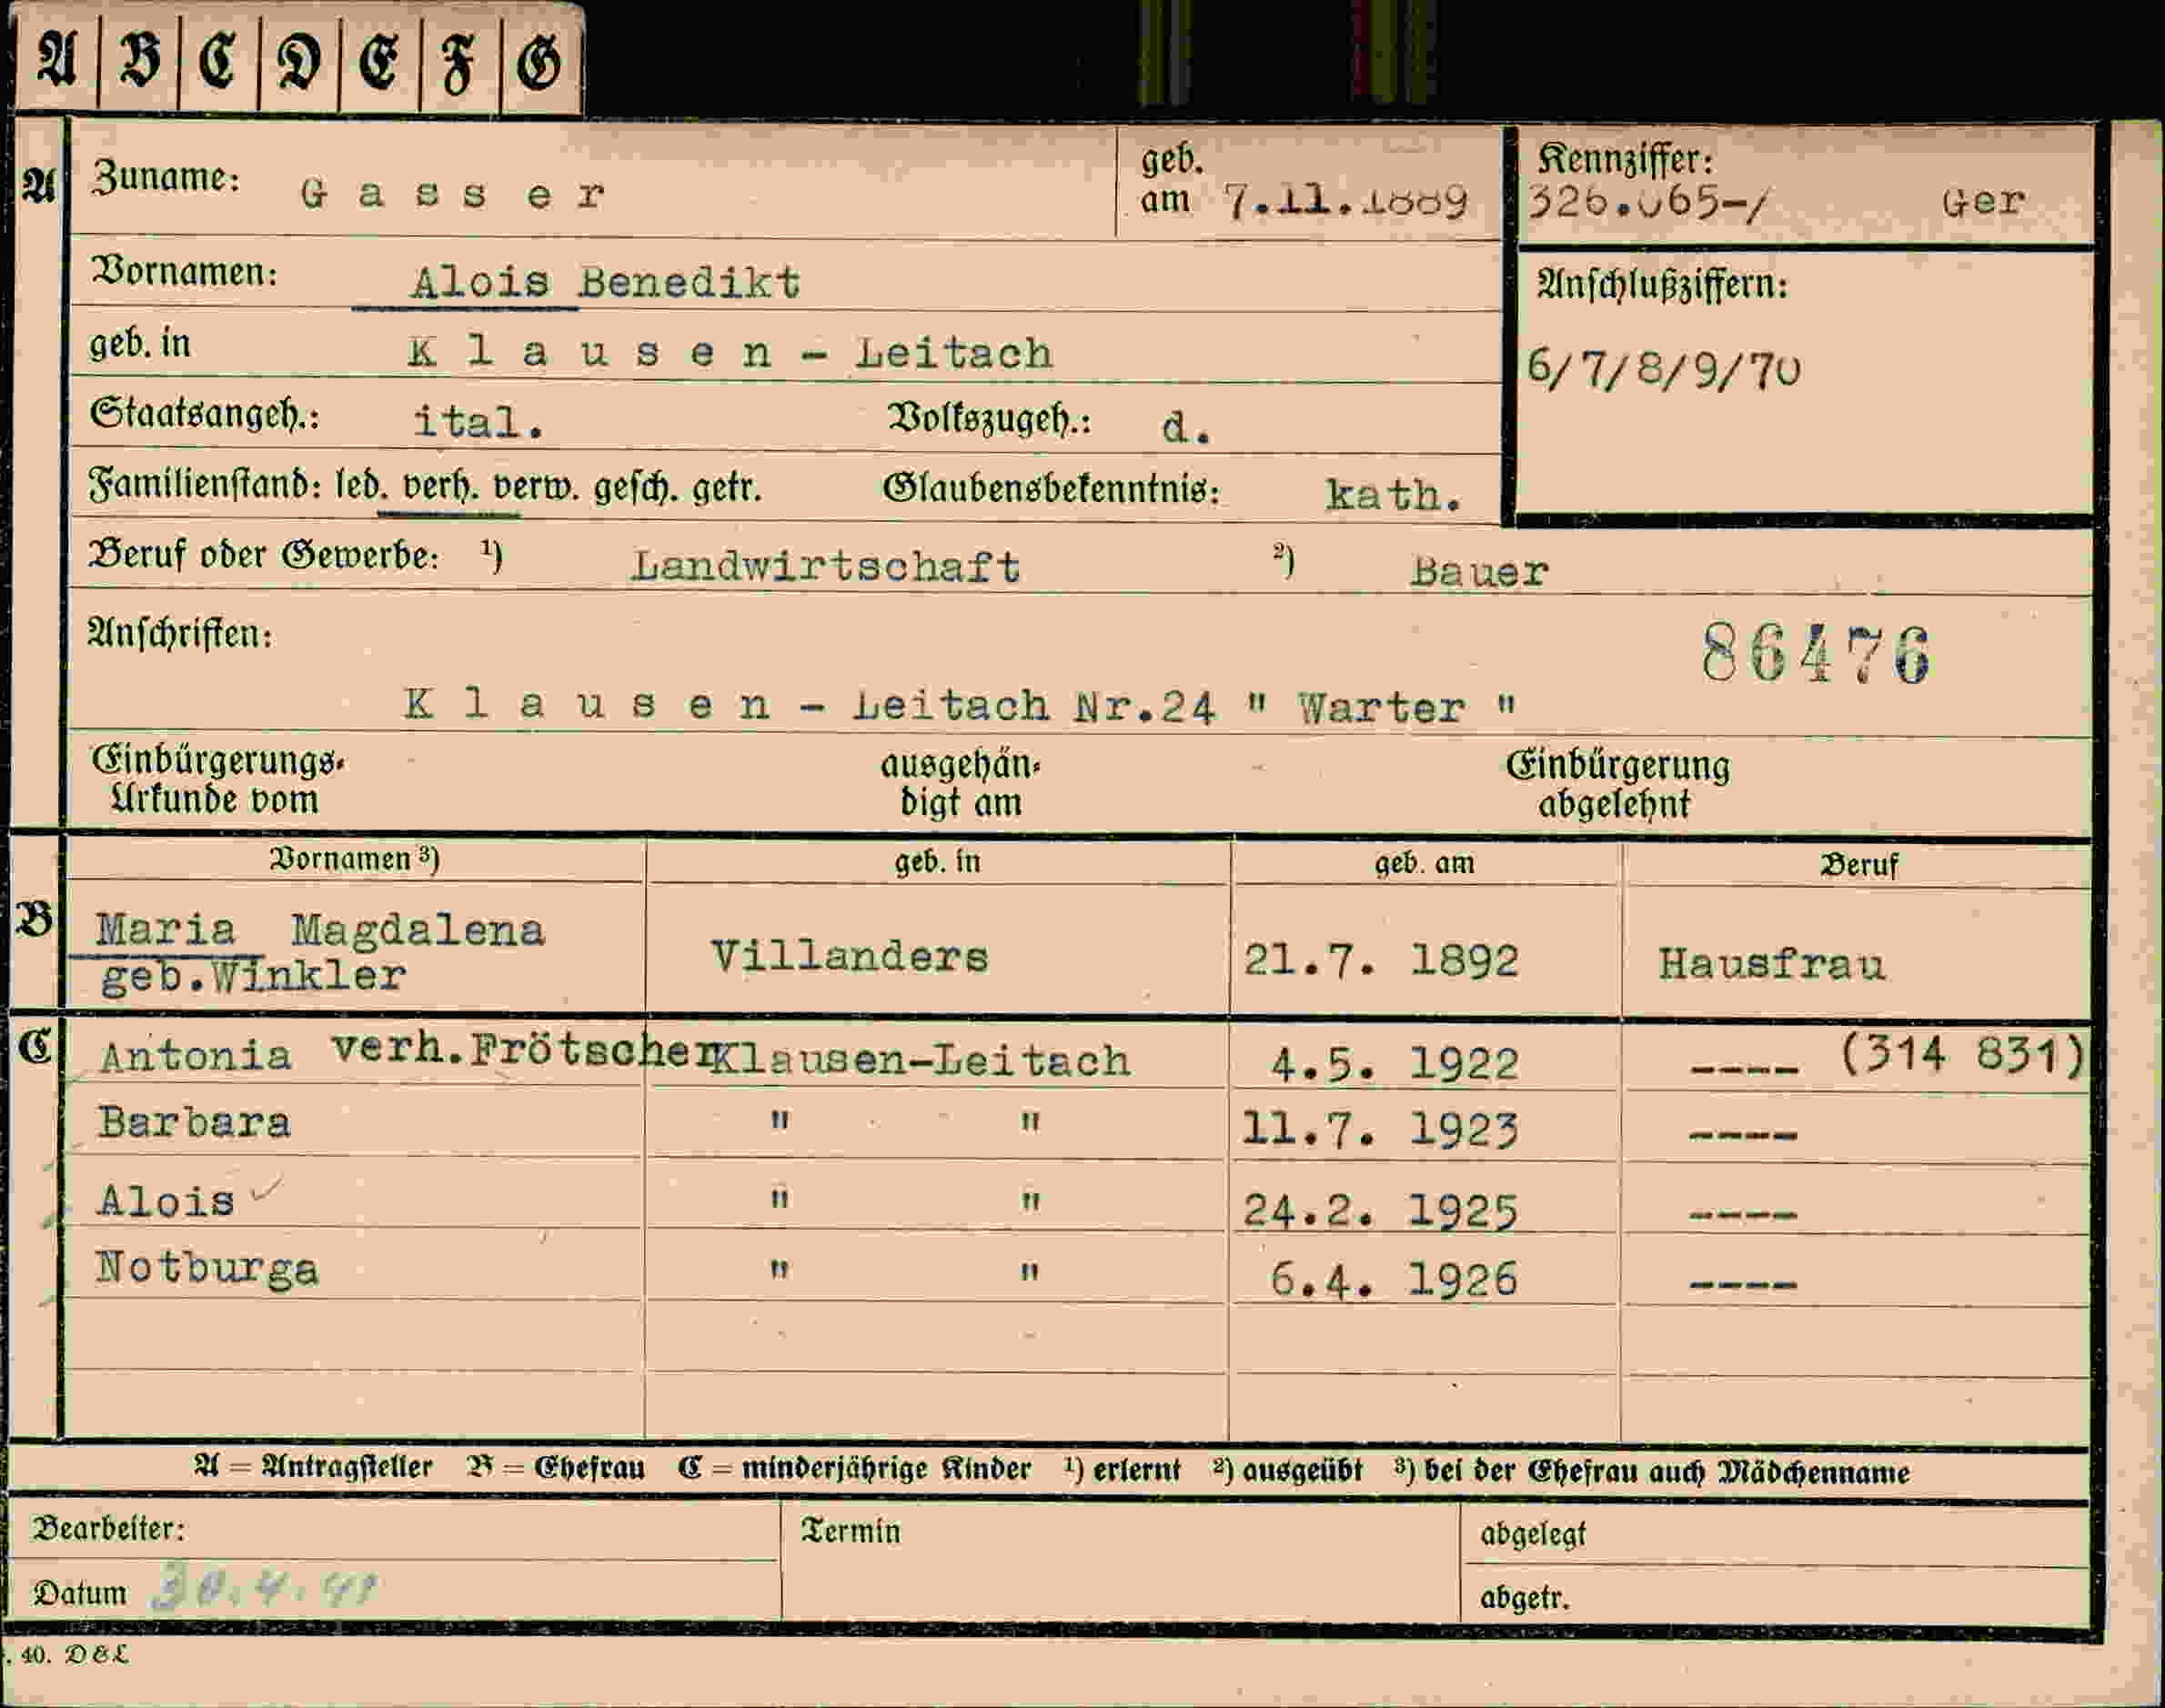 A B C D E F G
A Zuname: G a s s e r geb. am 7.11.1889 Kennziffer: 326.065-/ Ger
Vornamen: Alois Benedikt
Anschlußziffern:
geb. in K l a u s e n - Leitach
6/7/8/9/70
Staatsangeh.: ital. Volkszugeh.: d.
Familienstand: led. verh. verw. gesch. getr. Glaubensbekenntnis: kath.
Beruf oder Gewerbe: 1) Landwirtschaft 2) Bauer
Anschriften:
86476
K l a u s e n - Leitach Nr.24 " Warter "
Einbürgerungs- ausgehän- Einbürgerung
Urkunde vom digt am abgelehnt
Vornamen 3) geb. in geb. am Beruf
B Maria Magdalena
geb.Winkler Villanders 21.7. 1892 Hausfrau
C Antonia verh.Frötscher Klausen-Leitach 4.5. 1922 ---- (314 831)
Barbara " " 11.7. 1923 ----
Alois ✓ " " 24.2. 1925 ----
Notburga " " 6.4. 1926 ----
A = Antragsteller B = Ehefrau C = minderjährige Kinder 1) erlernt 2) ausgeübt 3) bei der Ehefrau auch Mädchenname
Bearbeiter: Termin abgelegt
Datum 30.4.41 abgetr.
. 40. D & L